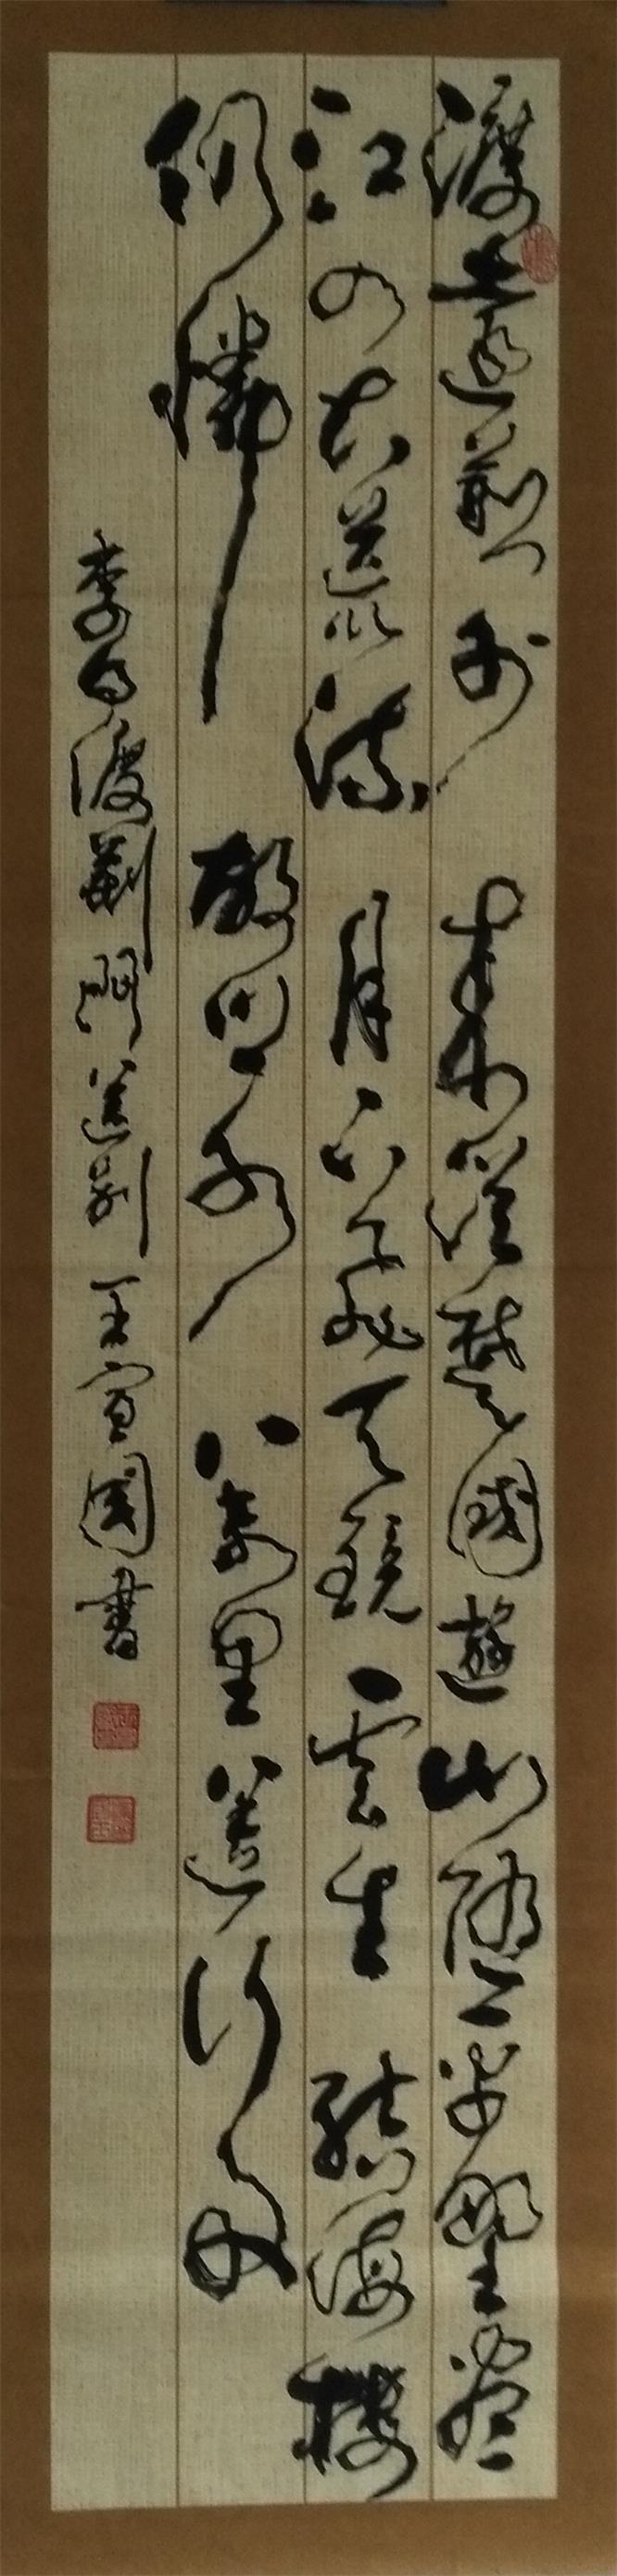 渡遠荊門外來從楚國遊山隨平野盡
江入大荒流月下飛天鏡雲生結海樓
仍憐故鄉水萬里送行舟
李白渡荊門送別王宣國書